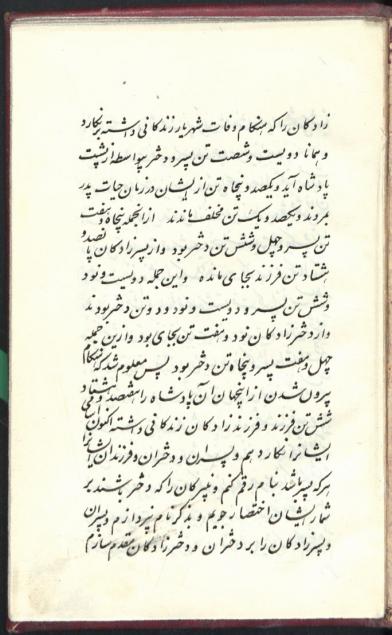 زادکان را که هنگام وفات شهریار زندگانی داشته بنگارد
و همانا دویست و شصت تن پسر و دختر بیواسطه از پشت
پادشاه آید و یکصد و پنجاه تن از ایشان در زمان حیات پدر
بمردند و یکصد و یک تن مخلف ماندند از انجمله پنجاه و هفت
تن پسر و چهل و شش تن دختر بود و از پسرزادکان پانصد و
هشتاد تن فرزند بجای مانده و این جمله دویست و نود
و شش تن پسر و دویست و نود و دو تن دختر بودند
و از دخترزادکان نود و هفت تن بجای بود و ازین جمله
چهل و هفت پسر و پنجاه تن دختر بود پس معلوم شد که هنگام
بیرون شدن از اینجهان آن پادشاه را هفتصد و هشتاد و
شش تن فرزند و فرزند زادکان زندگانی داشته اکنون اسامی
ایشانرا بنگار دهم و پسران و دختران و فرزندان ایشانرا
هر که پسر باشد بنام رقم کنم و نبیرکان را که دختر باشند بر
شمار ایشان اختصار جویم و بذکر نام نپردازم و پسران
و پسرزادکان را بر دختران و دخترزادکان مقدم سازم